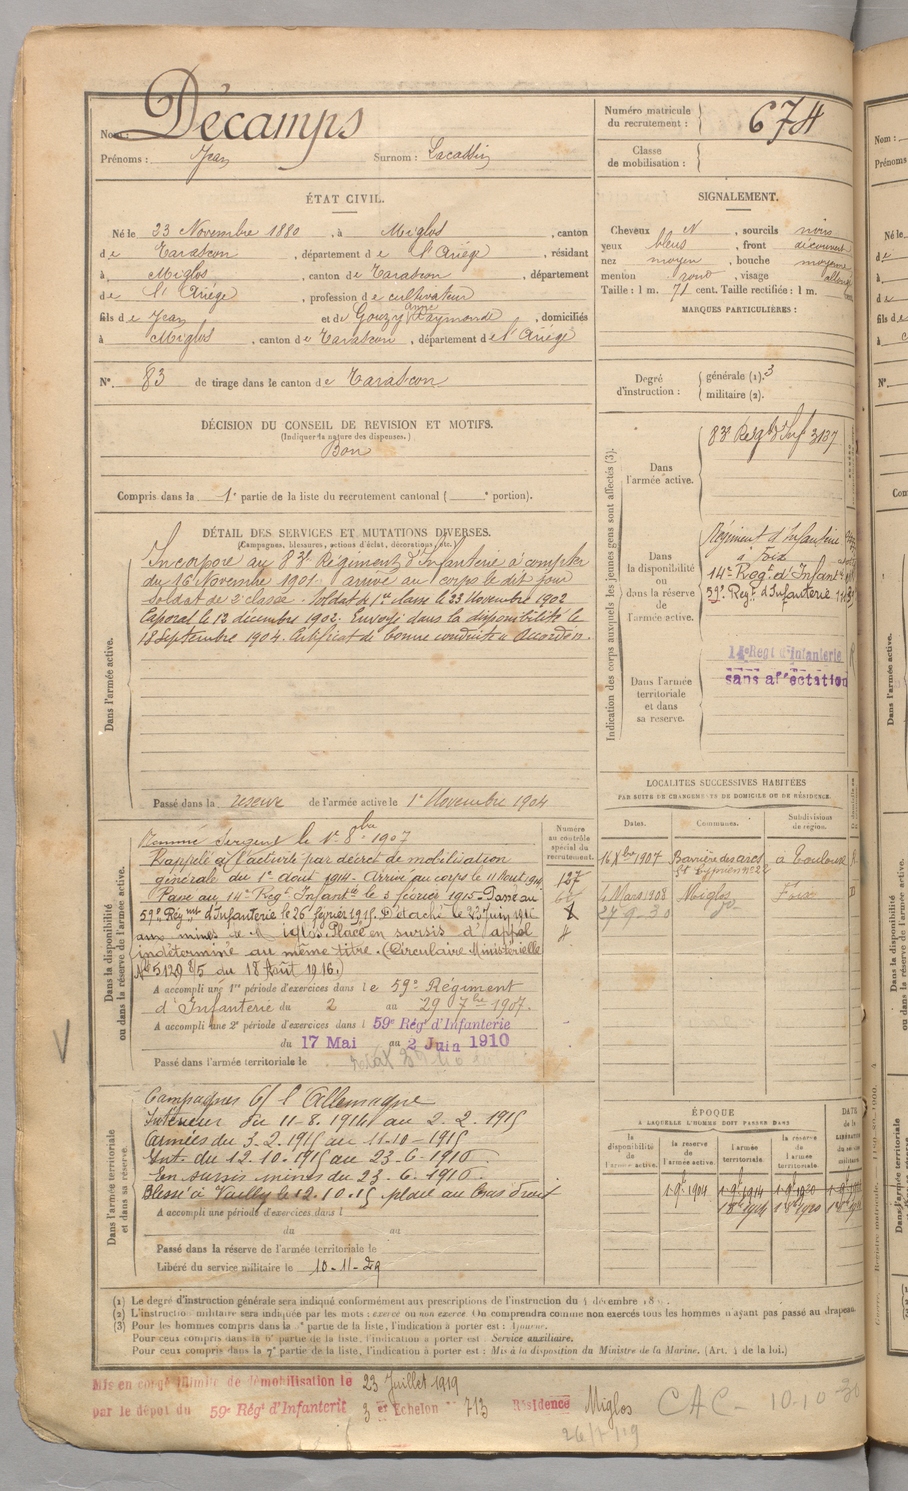 Nom : Décamps
Prénoms : Jean Surnom : Lacassin
Numéro matricule du recrutement : 674
Classe de mobilisation :
ÉTAT CIVIL.
Né le 23 Novembre 1880, à Miglos, canton
de Tarascon, département de l'Ariège, résidant
à Miglos, canton de Tarascon, département
de l'Ariège, profession de cultivateur
fils de Jean et de Gouzy Anne Raymonde, domiciliés
à Miglos, canton de Tarascon, département de l'Ariège
N° 83 de tirage dans le canton de Tarascon
SIGNALEMENT.
Cheveux N, sourcils noirs
yeux bleus, front découvert
nez moyen, bouche moyenne
menton rond, visage allongé
Taille : 1 m. 71 cent. Taille rectifiée : 1 m.
MARQUES PARTICULIÈRES :
Degré d'instruction : générale (1). 3
militaire (2).
DÉCISION DU CONSEIL DE REVISION ET MOTIFS.
(Indiquer la nature des dispenses.)
Bon
Compris dans la 1e partie de la liste du recrutement cantonal ( e portion).
DÉTAIL DES SERVICES ET MUTATIONS DIVERSES.
(Campagnes, blessures, actions d'éclat, décorations, etc.)
Dans l'armée active.
Incorporé au 83e Régiment d'Infanterie à compter
du 16 Novembre 1901 arrivé au corps le dit jour
Soldat de 2e classe. Soldat de 1re classe le 23 Novembre 1902
Caporal le 12 décembre 1902. Envoyé dans la disponibilité le
18 Septembre 1904. Certificat de bonne conduite "Accordé".
Passé dans la réserve de l'armée active le 1er Novembre 1904
Indication des corps auxquels les jeunes gens sont affectés (3).
Dans l'armée active.
83e Régt d'Inf 3137
Dans la disponibilité ou dans la réserve de l'armée active.
Régiment d'Infanterie
à Foix
14e Régt d'Infant
59e Régt d'Infanterie
Dans l'armée territoriale et dans sa reserve.
14e Régt d'Infanterie
sans affectation
LOCALITÉS SUCCESSIVES HABITÉES
PAR SUITE DE CHANGEMENTS DE DOMICILE OU DE RÉSIDENCE.
Dates. Communes. Subdivisions de région.
16 Xbre 1907 Barrière des arcs St Cyprien n° 22 à Toulouse
4 Mars 1908 Miglos Foix
27-9-30 do
Dans la disponibilité ou dans la réserve de l'armée active.
Numéro au contrôle spécial du recrutement.
127
Nommé Sergent le 1er 8bre 1907
Rappelé à l'activité par décret de mobilisation
générale du 1er Août 1914. Arrivé au corps le 11 Août 1914
Passé au 14e Régt Infantie le 3 février 1915. Passé au
59e Régimt d'Infanterie le 26 février 1915. Détaché le 23 Juin 1916
aux mines de Miglos. Placé en sursis d'appel
indéterminé au même titre. (Circulaire Ministérielle
du 18 Août 1916.)
A accompli une 1re période d'exercices dans le 59e Régiment
d'Infanterie du 2 au 29 7bre 1907.
A accompli une 2e période d'exercices dans l 59e Rég d'Infanterie
du 17 Mai au 2 Juin 1910
Passé dans l'armée territoriale le
Dans l'armée territoriale et dans sa réserve.
Campagnes C/ l'Allemagne
Intérieur du 11-8.1914 au 2.2.1915
Armées du 3-2.1915 au 11-10-1915
Int. du 12.10.1915 au 23-6-1916
En sursis mines du 23.6.1916
Blessé à Vailly le 12.10.15 plaie au bras droit
A accompli une période d'exercices dans l
du au
Passé dans la réserve de l'armée territoriale le
Libéré du service militaire le 10-11-29
ÉPOQUE
À LAQUELLE L'HOMME DOIT PASSER DANS
la disponibilité de l'armée active. la réserve de l'armée active. l'armée territoriale. la réserve de l'armée territoriale. DATE de la LIBÉRATION du service militaire.
1-9b 1904 1-9b 1914 1-9b 1920
(1) Le degré d'instruction générale sera indiqué conformément aux prescriptions de l'instruction du 4 décembre 18
(2) L'instruction militaire sera indiquée par les mots : exercé ou non exercé. On comprendra comme non exercés tous les hommes n'ayant pas passé au drapeau.
(3) Pour les hommes compris dans la partie de la liste, l'indication à porter est :
Pour ceux compris dans la 6e partie de la liste, l'indication à porter est : Service auxiliaire.
Pour ceux compris dans la 7e partie de la liste, l'indication à porter est : Mis à la disposition du Ministre de la Marine. (Art. 4 de la loi.)
Mis en congé illimité de démobilisation le 23 Juillet 1919
par le dépot du 59e Régt d'Infanterie 3 e Echelon n° 713 Résidence Miglos
CAC - 10-10-30